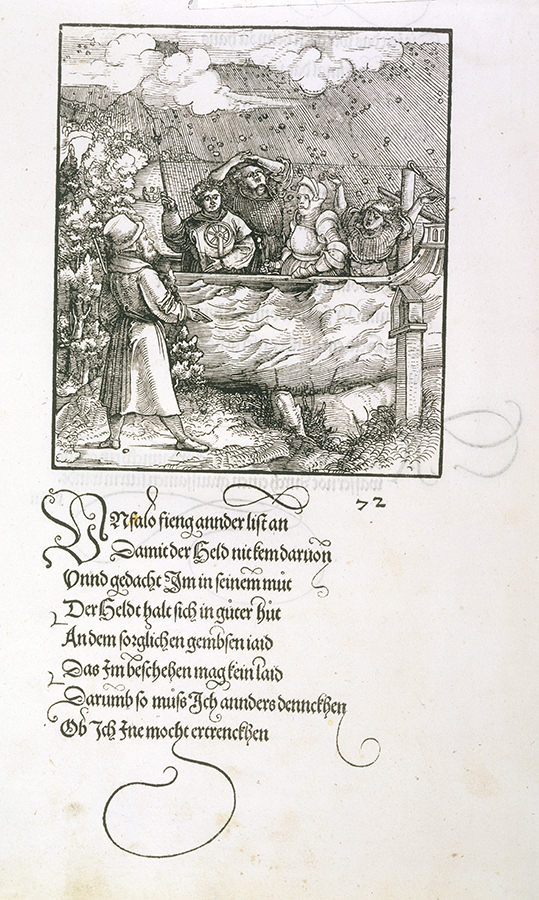 72
VNfalo fieng annder list an
Damit der Held nit kem daruon
Vnnd gedacht Jm in seinem můt
Der Heldt halt sich in gůter hůt
An dem sorglichen gembsen iaid
Das Jm beschehen mag kein laid
Darumb so můss Jch annders dennckhen
Ob Jch Jne mocht ertrenckhen